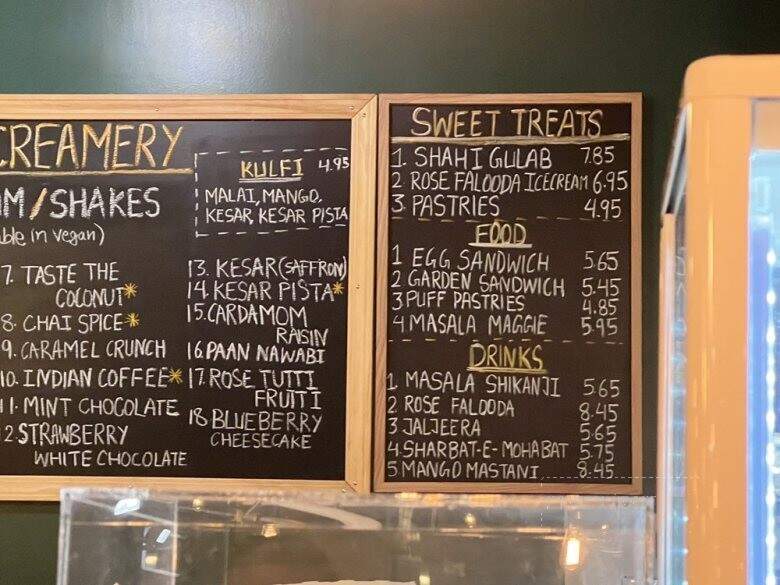 CREAMERY
M/SHAKES
ble in vegan)
7. TASTE THE
COCONUT*
8. CHAI SPICE*
9. CARAMEL CRUNCH
10. INDIAN COFFEE*
11. MINT CHOCOLATE
12. STRAWBERRY
WHITE CHOCOLATE
KULFI 4.95
MALAI, MANGO,
KESAR, KESAR PISTA
13. KESAR (SAFFRON)
14. KESAR PISTA*
15. CARDAMOM
RAISIN
16. PAAN NAWABI
17. ROSE TUTTI
FRUTTI
18 BLUEBERRY
CHEESECAKE
SWEET TREATS
1. SHAHI GULAB 7.85
2 ROSE FALOODA ICECREAM 6.95
3 PASTRIES 4.95
FOOD
1 EGG SANDWICH 5.65
2 GARDEN SANDWICH 5.45
3 PUFF PASTRIES 4.85
4 MASALA MAGGIE 5.95
DRINKS
1 MASALA SHIKANJI 5.65
2 ROSE FALOODA 8.45
3 JALJEERA 5.65
4. SHARBAT-E-MOHABAT 5.75
5. MANGO MASTANI 8.45